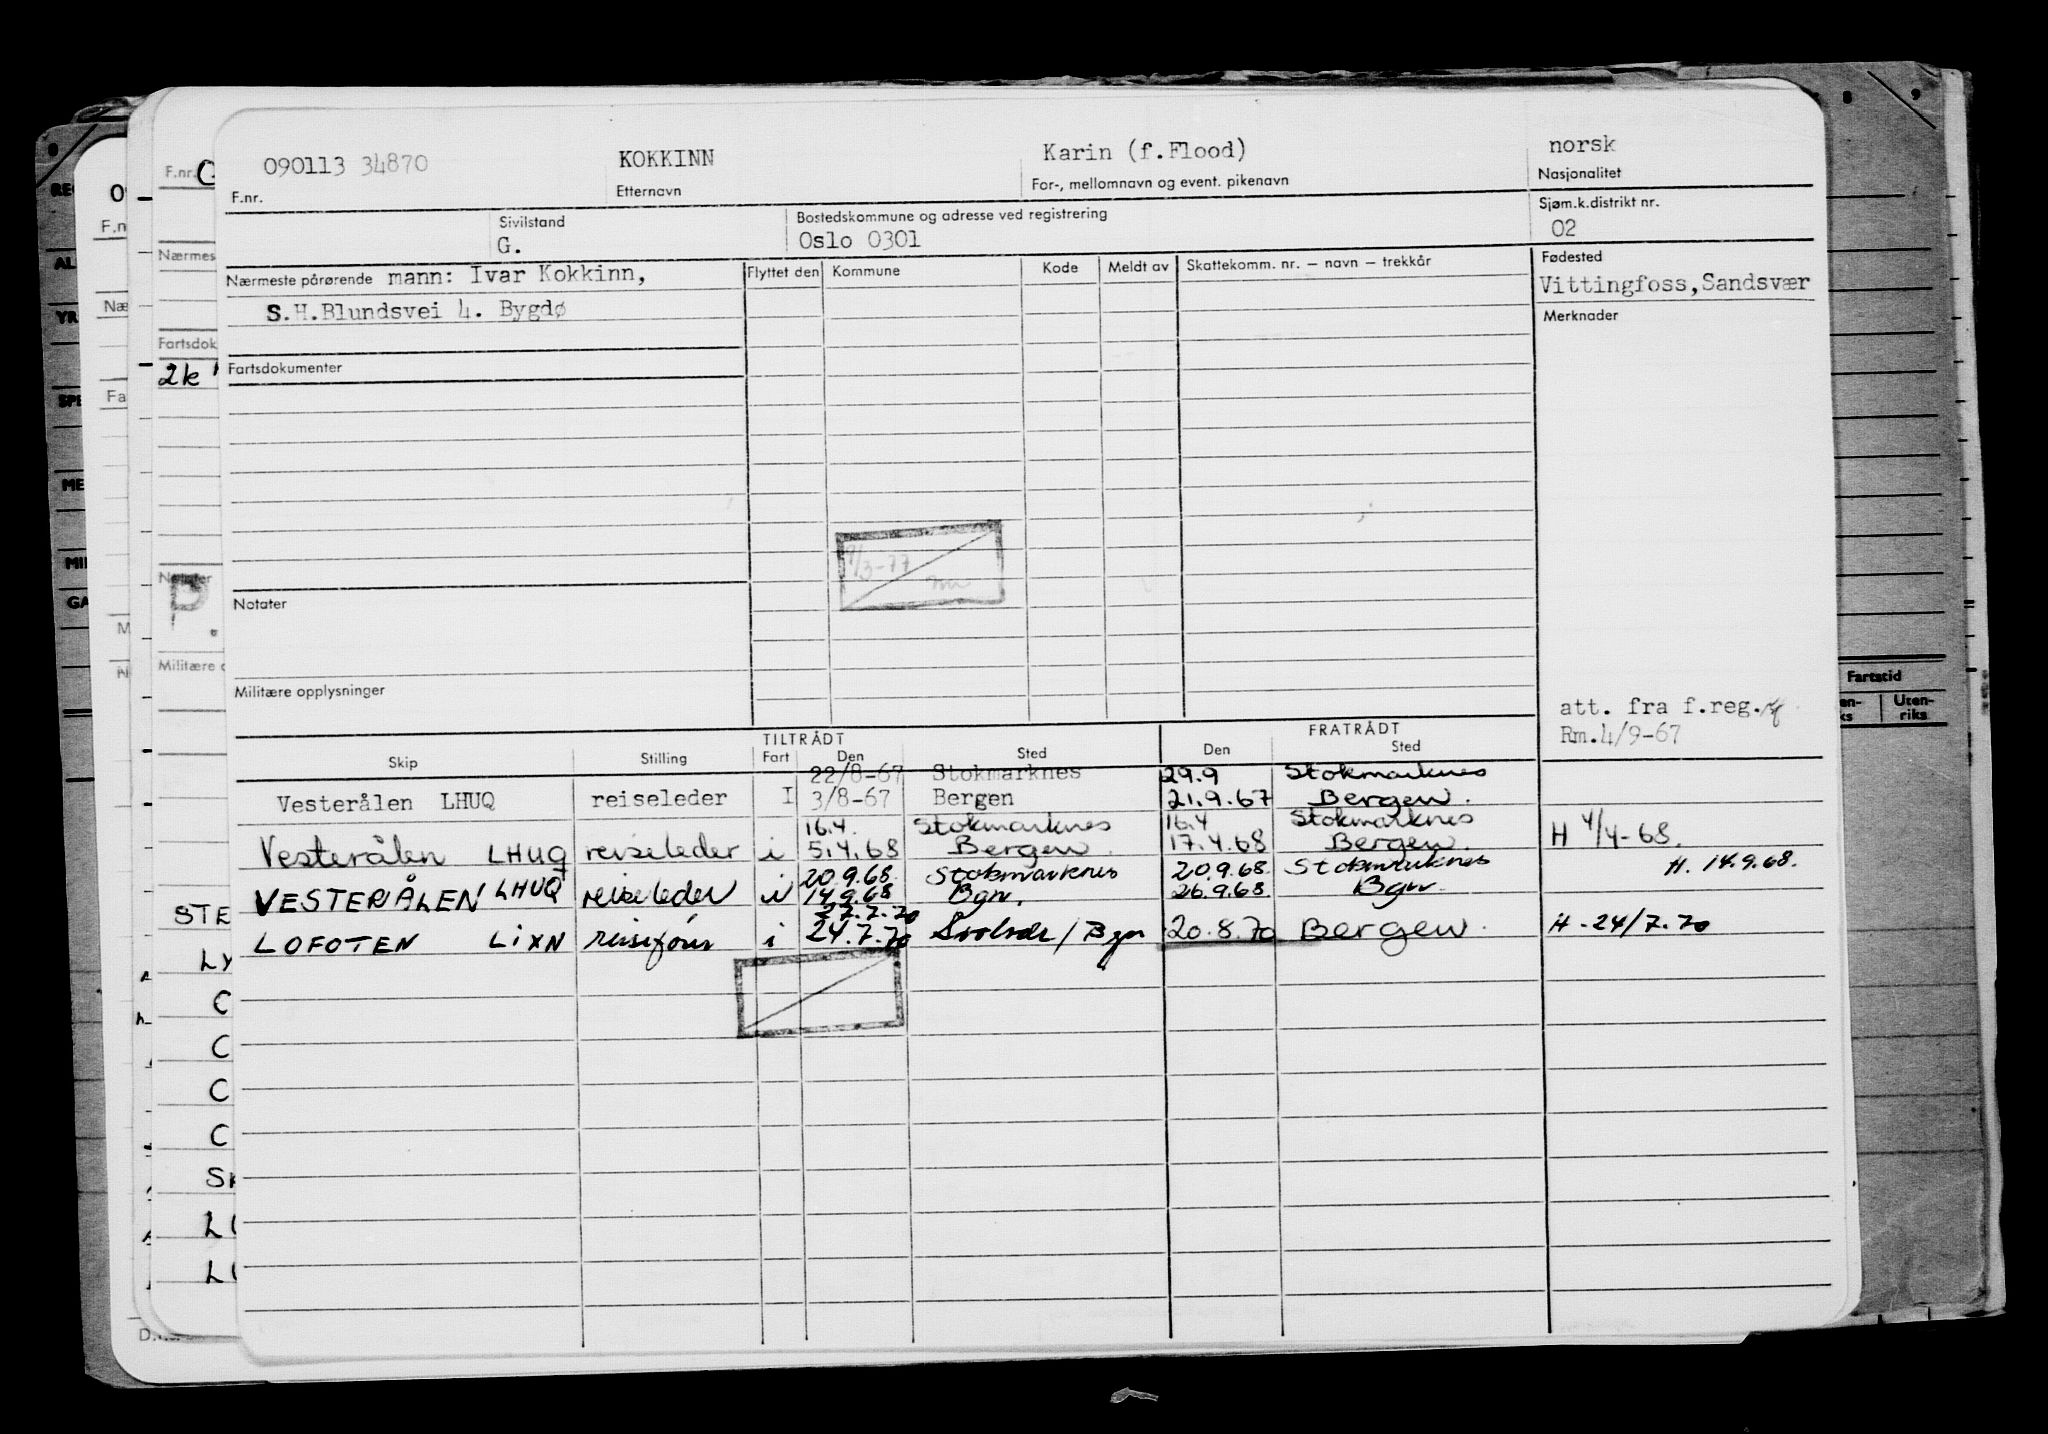 090113 34870 KOKKINN Karin (f.Flood) norsk
F.nr. Etternavn For-, mellomnavn og event. pikenavn Nasjonalitet
Sivilstand Bostedskommune og adresse ved registrering Sjøm.k.distrikt nr.
G. Oslo 0301 02
Nærmeste pårørende mann: Ivar Kokkinn, Flyttet den Kommune Kode Meldt av Skattekomm. nr. – navn – trekkår Fødested
S.H.Blundsvei 4. Bygdø Vittingfoss,Sandsvær
Merknader
Fartsdokumenter
9/3-77
Notater
Militære opplysninger
att. fra f.reg.
Rm.4/9-67
TILTRÅDT FRATRÅDT
Skip Stilling Fart Den Sted Den Sted
22/8-67 Stokmarknes 29.9 Stokmarknes
Vesterålen LHUQ reiseleder I 3/8-67 Bergen 21.9.67 Bergen.
16.4. Stokmarknes 16.4 Stokmarknes
Vesterålen LHUQ reiseleder i 5.4.68 Bergen. 17.4.68 Bergen. H 4/4-68.
20.9.68. Stokmarknes 20.9.68. Stokmarknes H. 14.9.68.
VESTERÅLEN LHUQ reiseleder i 14.9.68 Bgn. 26.9.68. Bgn.
27.7.70
LOFOTEN LIXN i 24.7.70 Svolvær / Bgn 20.8.70 Bergen. H-24/7.70
F.nr.
Nærmes
Fartsdok
2k
Notater
P.
Militære o
STE
LY
C
C
C
C
SK
F.n
Næ
Fa
M
REG
AL
YR
SPE
ME
MIL
GA
8 9
Fartstid
Uten-
riks